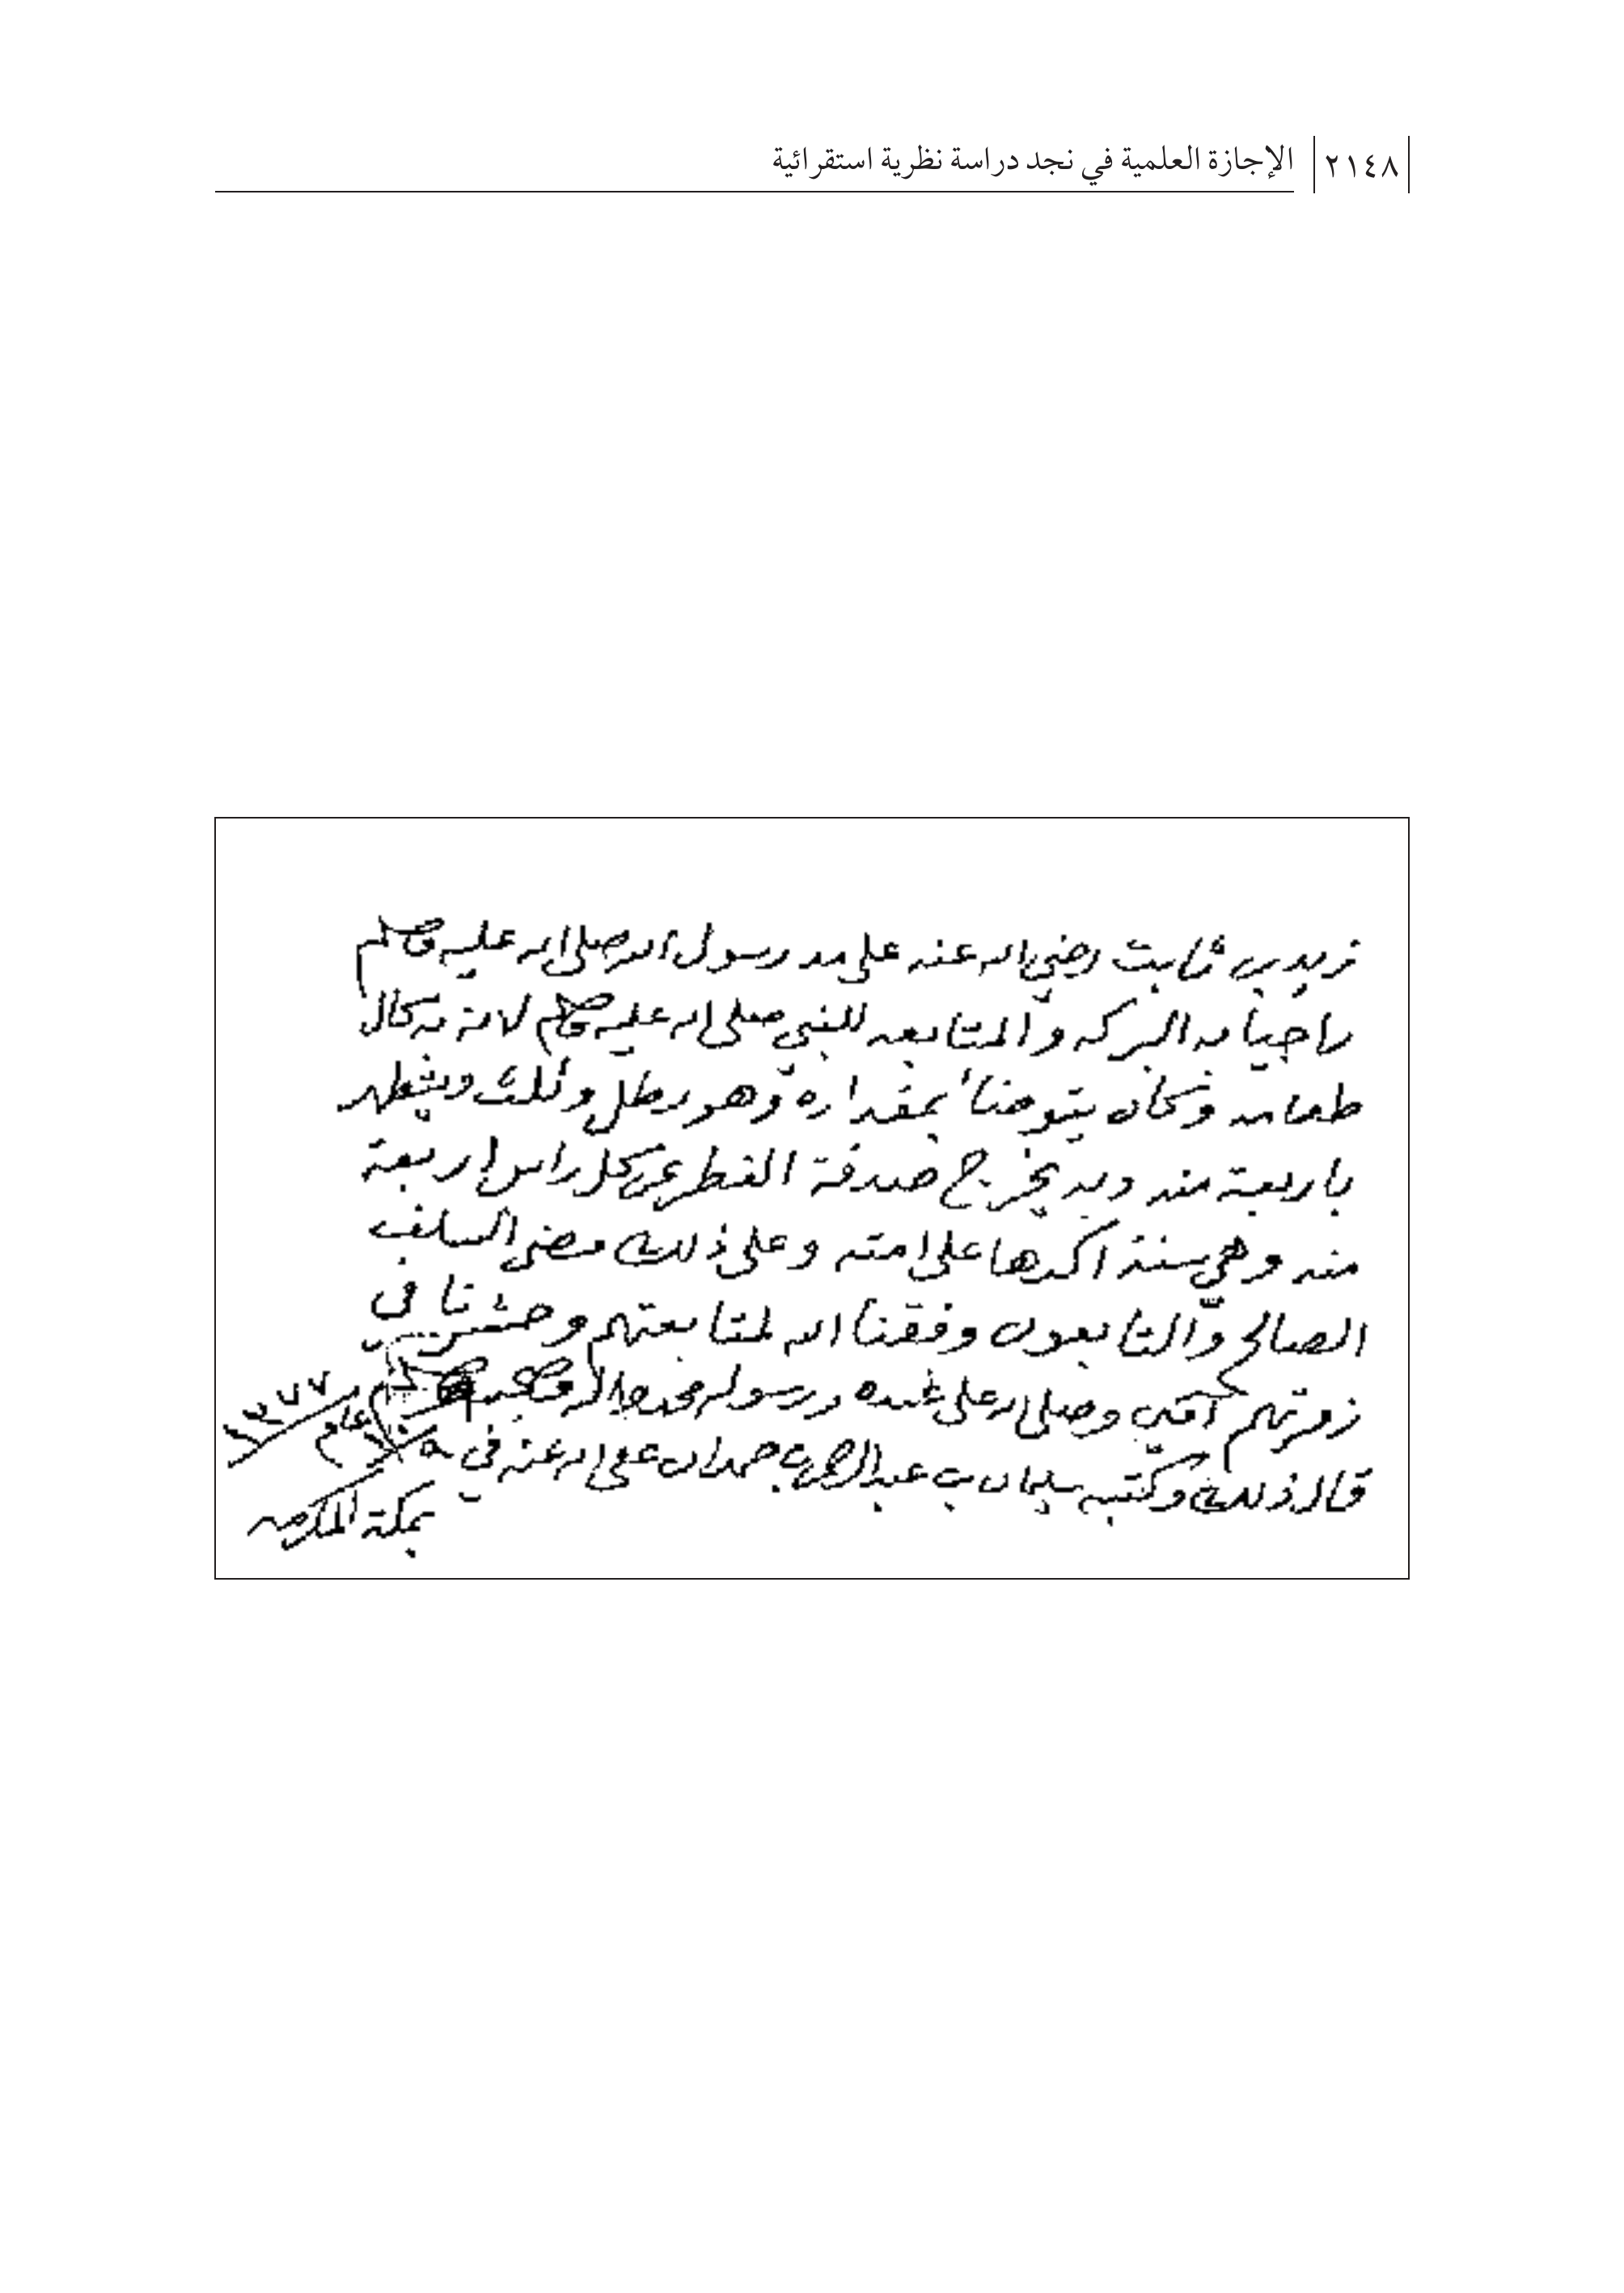 ٢١٤٨ الإجازة العلمية في نجد دراسة نظرية استقرائية
زيد بن ثابت رضي الله عنه على مد رسول الله صلى الله عليه وسلم
راجيا به البركه والمتابعه للنبي صلى الله عليه وسلم لانه به كال
طعامه وكان يتوضأ بمقداره وهو رطل وثلث ويتطهر
باربعة منه وبه يخرج صدقة الفطر عن كل راس اربعة
منه وهي سنة اكدها على امته وعلى ذلك مضى السلف
الصالح والتابعون وفقنا الله لمتابعتهم وحشرنا في
زمرتهم آمين وصلى الله على عبده ورسوله محمد وآله وصحبه
قال ذلك وكتبه سليمان بن عبدالرحمن بن حمدان عفى الله عنه في عام
بمكة المكرمه